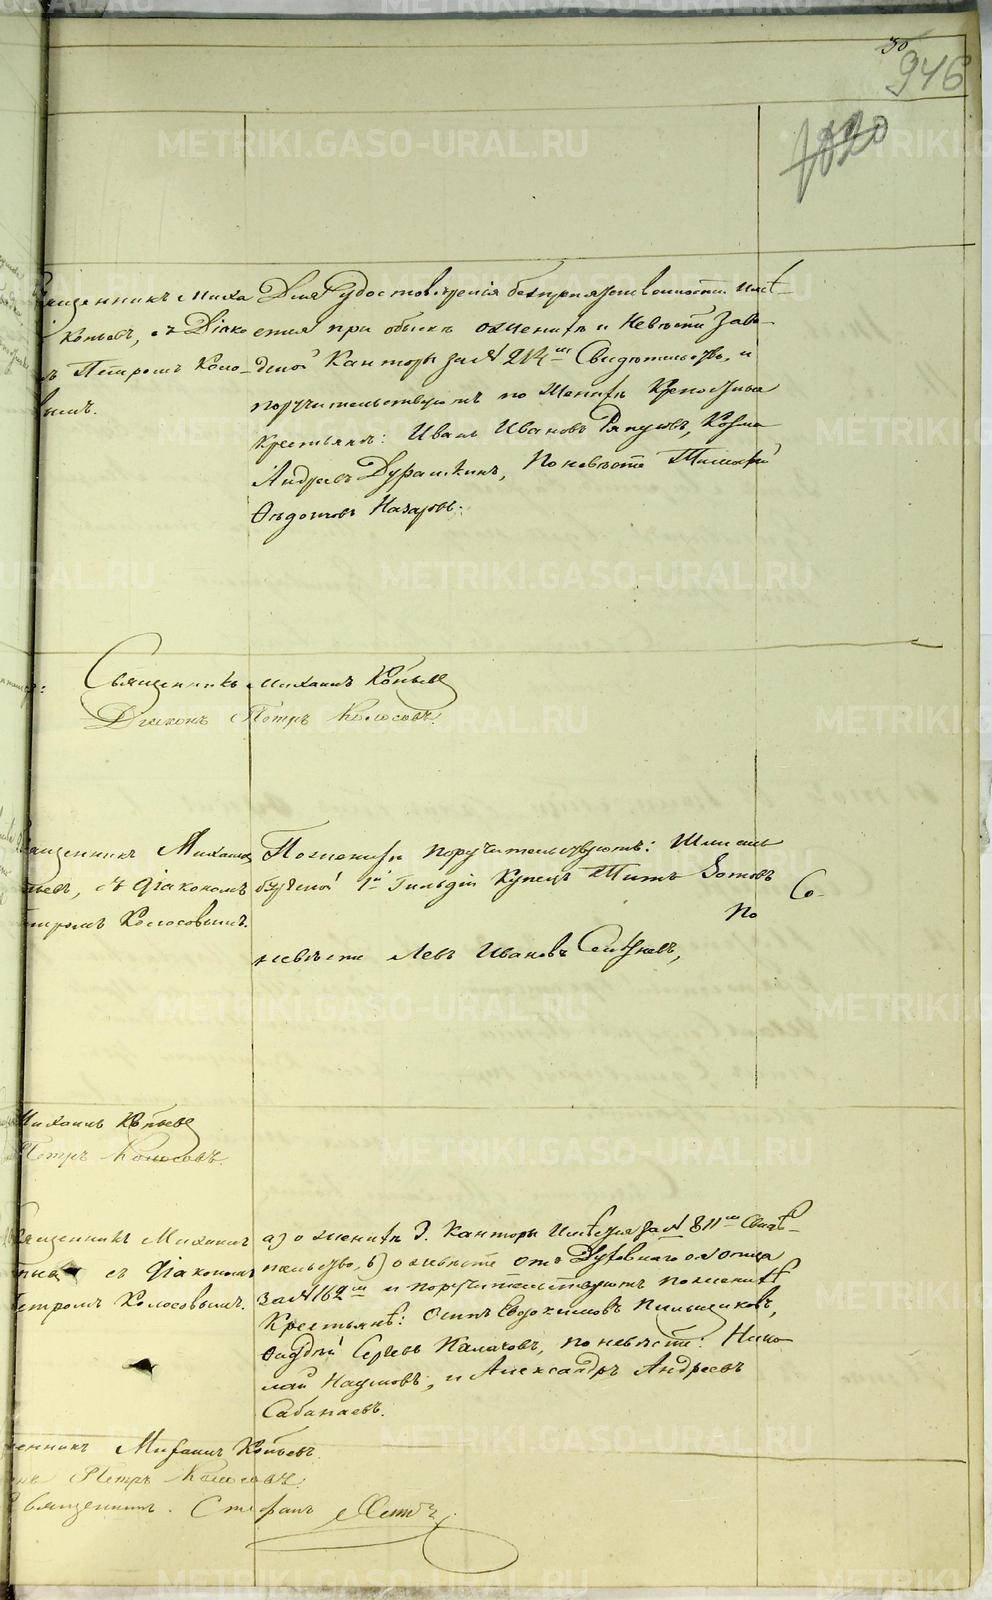 50
946
1020
Священникъ Миха
Копьевъ, съ Діако
ъ Петромъ Коло-
вымъ.
Для Удостовѣренія безпрепятственности имѣ-
ется при обыскѣ о женихѣ и Невѣстѣ Заво-
дской Канторы за № 214м Свидѣтельство, и
поручительствуютъ по Женихѣ Крепостныа
Крестьяна: Иванъ Ивановъ Ряпусовъ, Козма
Андреевъ Дурашкинъ, По невѣсте Тимофей
Ѳедотовъ Назаровъ.
Священникъ Михаилъ Копьевъ
Діаконъ Петръ Колосовъ.
Священникъ Михаилъ
Копьевъ, съ Діакономъ
Петромъ Колосовымъ.
По женихѣ поручительствуютъ:
1й Гильдіи Купецъ Титъ Зотовъ
Со-
По
невѣсте Левъ Ивановъ
Михаилъ Копьевъ
Петръ Колосовъ.
Священникъ Михаилъ
съ Діакономъ
Петромъ Колосовымъ.
а) о женихѣ З. Канторы Имѣется за № 811м Свидѣ-
тельство, б) о невѣсте отъ Духовнаго отца
за № 162м и поручительствуютъ по женихѣ
Крестьянѣ: Осипъ Евдокимовъ Пильщиковъ,
Ѳаддѣй Сергѣевъ Калачовъ, по невѣсте: Нико-
лай Наумовъ, и Александръ Андреевъ
Сабанаевъ.
Священникъ Михаилъ Копьевъ.
Петръ Колосовъ.
Священникъ Стефанъ
METRIKI.GASO-URAL.RU